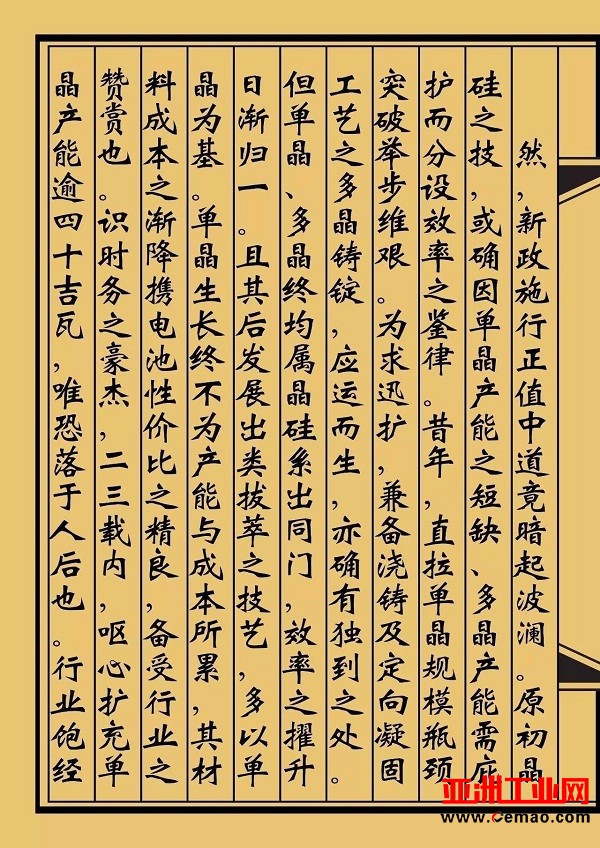 然，新政施行正值中道竟暗起波澜。原初晶
硅之技，或确因单晶产能之短缺、多晶产能需庇
护而分设效率之鉴律。昔年，直拉单晶规模瓶颈
突破举步维艰。为求迅扩，兼备浇铸及定向凝固
工艺之多晶铸锭，应运而生，亦确有独到之处。
但单晶、多晶终均属晶硅系出同门，效率之擢升
日渐归一。且其后发展出类拔萃之技艺，多以单
晶为基。单晶生长终不为产能与成本所累，其材
料成本之渐降携电池性价比之精良，备受行业之
赞赏也。识时务之豪杰，二三载内，呕心扩充单
晶产能逾四十吉瓦，唯恐落于人后也。行业饱经
亚洲工业网
www.cemao.com